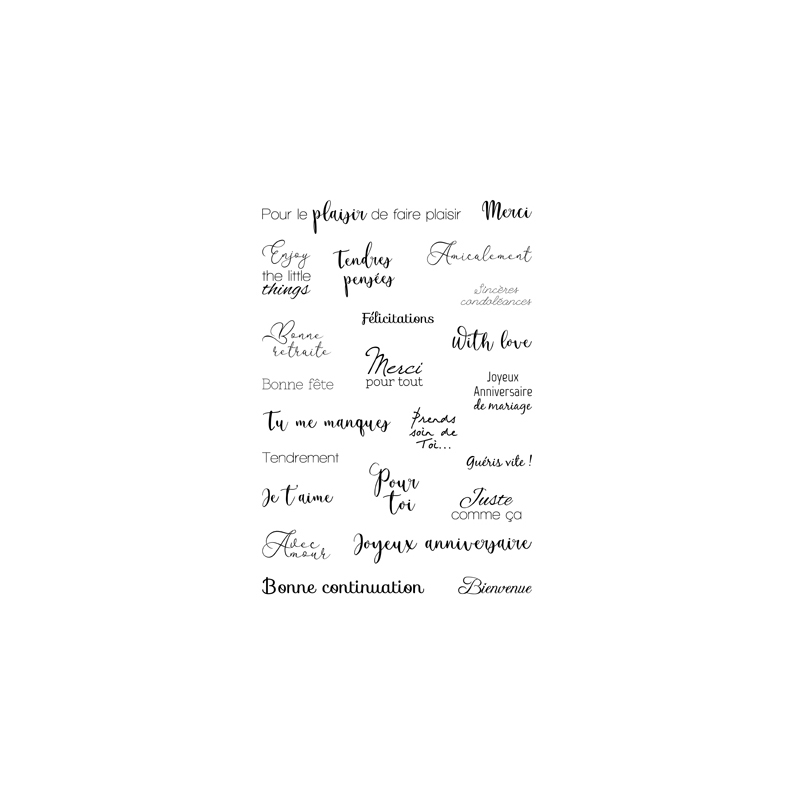 Pour le plaisir de faire plaisir
Merci
Enjoy
the little
things
Tendres
pensées
Amicalement
Sincères
condoléances
Félicitations
Bonne
retraite
With love
Merci
pour tout
Joyeux
Anniversaire
de mariage
Bonne fête
Tu me manques
Prends
soin de
Toi...
Tendrement
Guéris vite !
Pour
toi
Je t'aime
Juste
comme ça
Avec
Amour
Joyeux anniversaire
Bonne continuation
Bienvenue